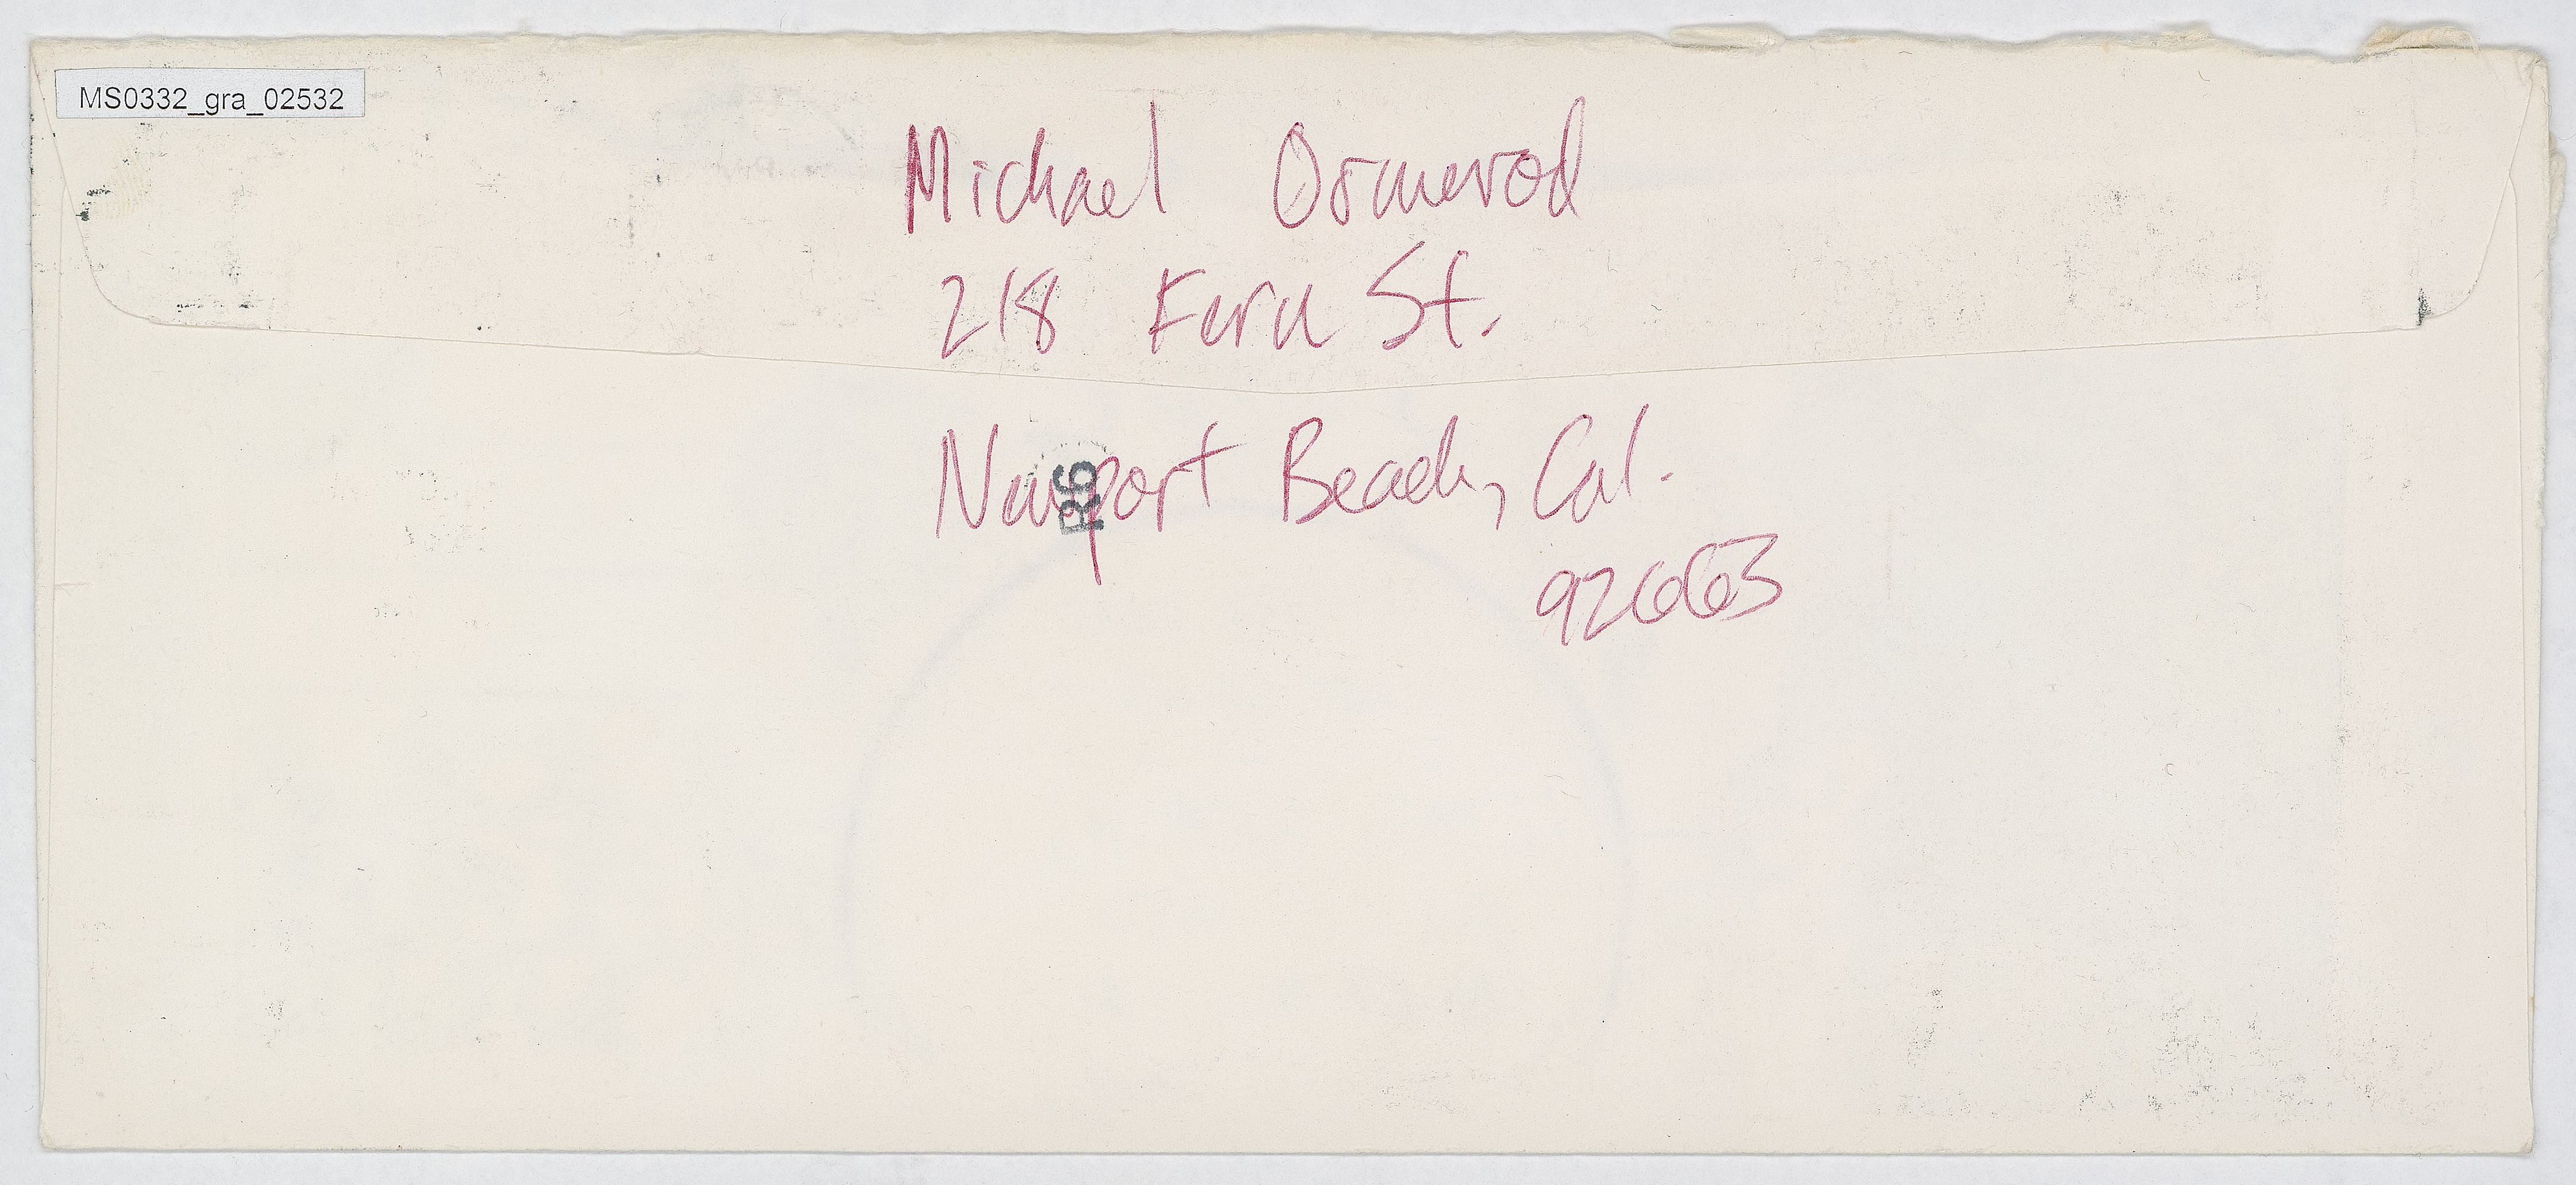 MS0332_gra_02532
Michael Ormerod
218 Fern St.
Newport Beach, Cal.
92663